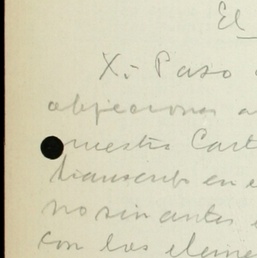 El
X.- Paso
objeciones a
nuestra Cart
transcrib en e
no sin antes
con los eleme